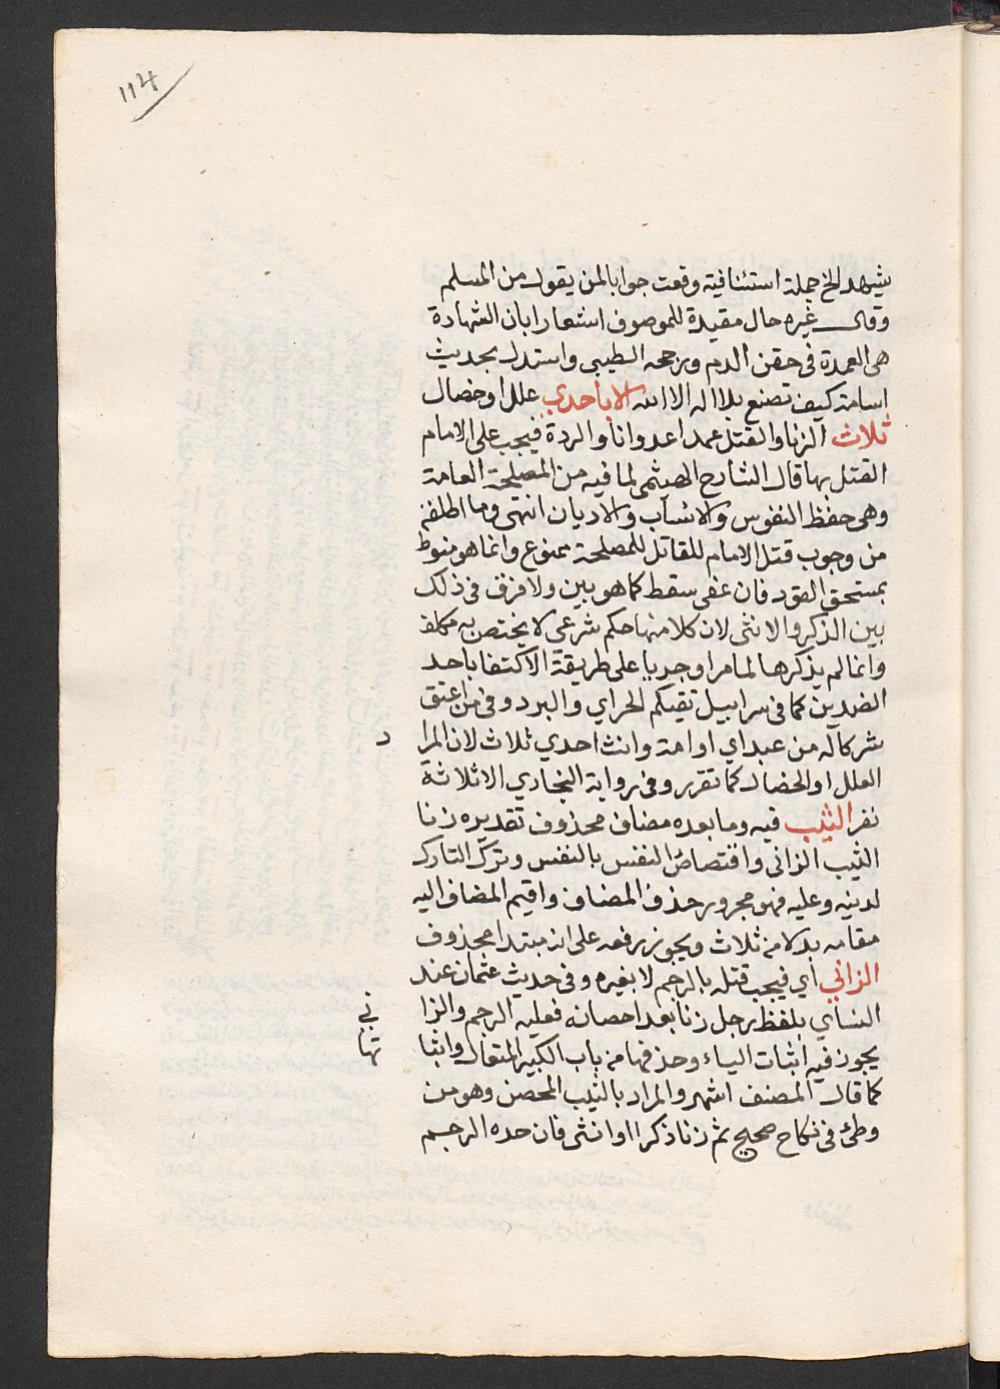 114
يشهد الخ جملة استئنافية وقعت جوابا لمن يقول من المسلم
وقال غيره حال مقيدة للموصوف اشعارا بان الشهادة
هي العمدة في حقن الدم ورجحه الطيبي واستدل بحديث
اسامة كيف تصنع بلا اله الا الله الا باحدي علل او خصال
ثلاث الزنا والقتل عمدا عدوانا والردة فيجب على الامام
القتل بها قال الشارح الهيثمى لما فيه من المصلحة العامة
وهي حفظ النفوس والانساب والاديان انتهى وما اطلقه
من وجوب قتل الامام للقاتل للمصلحة ممنوع وانما هو منوط
بمستحق القود فان عفى سقط كما هو بين ولا فرق في ذلك
بين الذكر والانثى لان كلا منها حكم شرعي لا يختص به مكلف
وانما لم يذكرها لما مر او جريا على طريقة الاكتفا باحد
الضدين كما في سرابيل تقيكم الحر اي والبرد وفي من اعتق
شركا له من عبد اي او امة وانث احدي ثلاث لان المرا
د
العلل او الخصال كما تقرر وفي رواية البخاري الا ثلاثة
نفر الثيب فيه وما بعده مضاف محذوف تقديره زنا
الثيب الزاني واقتصاص النفس بالنفس وترك التارك
لدينه وعليه فهو مجرور حذف المضاف واقيم المضاف اليه
مقامه بدلا من ثلاث ويجوز رفعه على انه مبتدا محذوف
الزاني اي فيجب قتله بالرجم لا بغيره وفي حديث عثمان عند
النساي بلفظ رجل زنا بعد احصانه فعليه الرجم والزا
ني
يجوز فيه اثبات الياء وحذفها من باب الكبير المتعال واثبا
تها
كما قال المصنف اشهر والمراد بالثيب المحصن وهو من
وطئ في نكاح صحيح ثم زنا ذكرا او انثى فان حده الرجم